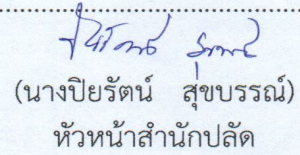 (นางปิยรัตน์ สุขบรรณ์)
หัวหน้าสำนักปลัด